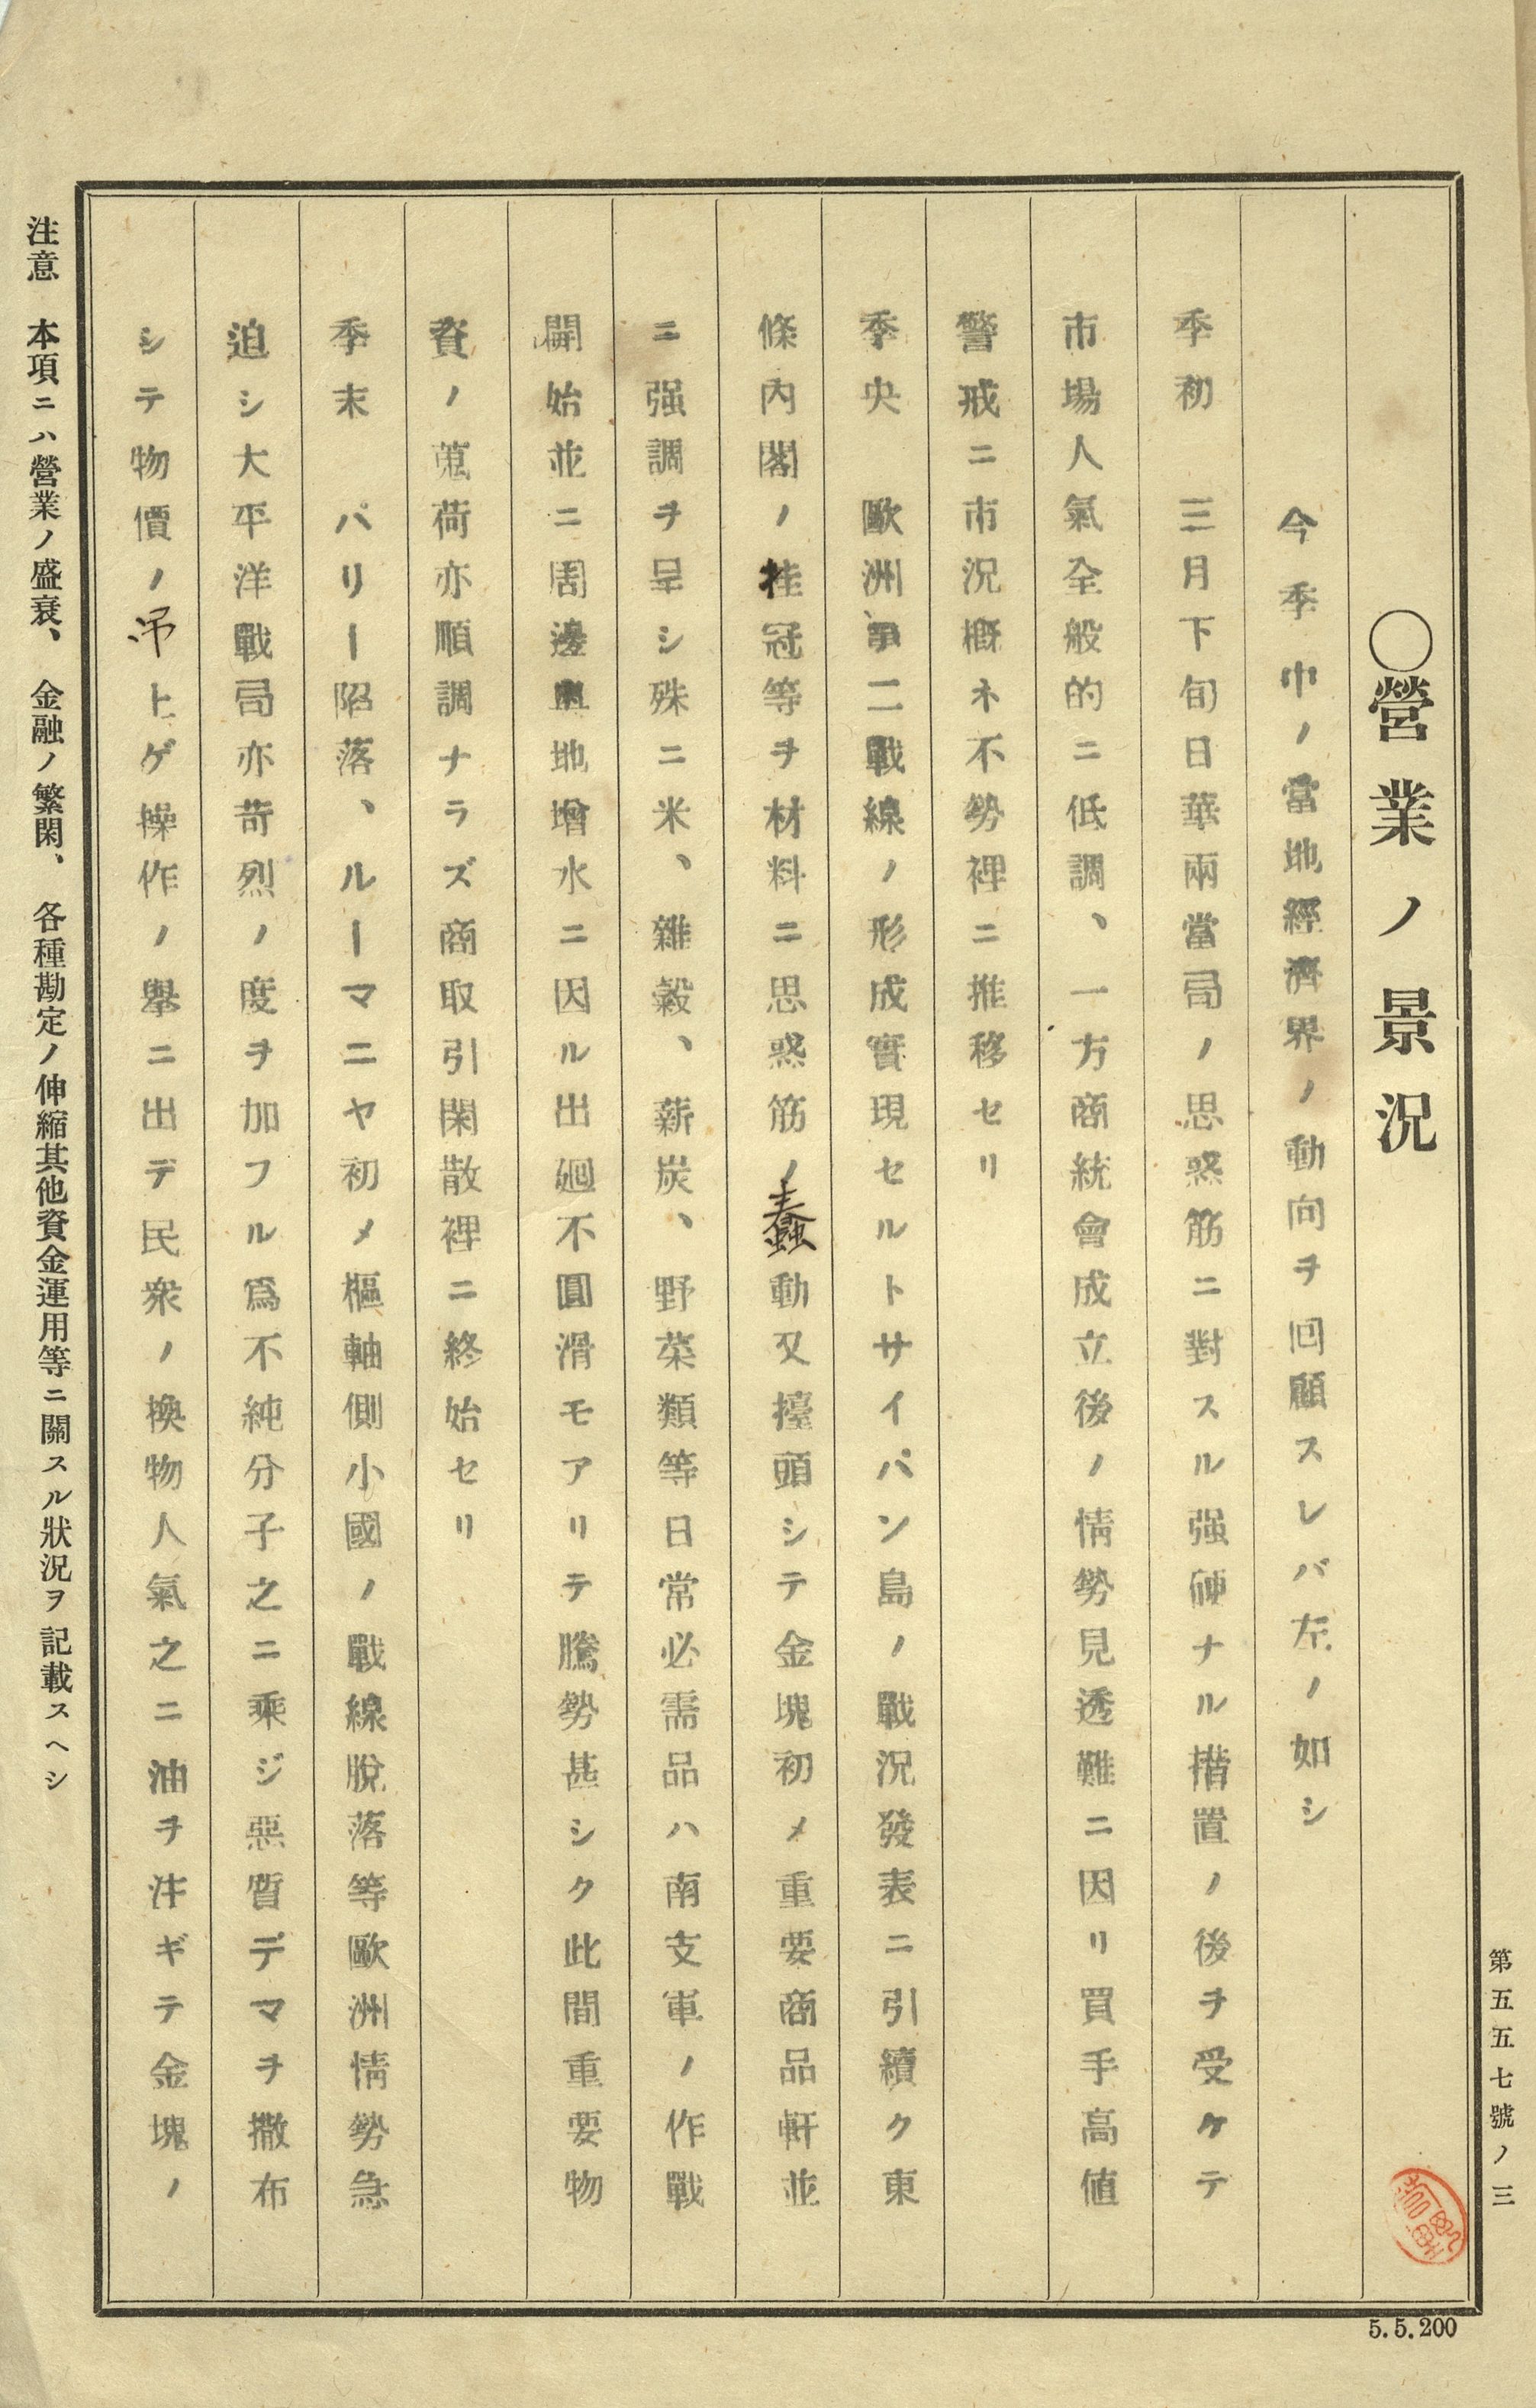 〇營業ノ景況
今季中ノ當地經濟界ノ動向ヲ回顧スレバ左ノ如シ
季初　三月下旬日華兩當局ノ思惑筋ニ對スル强硬ナル措置ノ後ヲ受ケテ
市場人氣全般的ニ低調、一方商統會成立後ノ情勢見透難ニ因リ買手高値
警戒ニ市況概ネ不勢裡ニ推移セリ
季央　歐洲第二戰線ノ形成實現セルトサイパン島ノ戰況發表ニ引續ク東
條內閣ノ挂冠等ヲ材料ニ思惑筋ノ蠢動又擡頭シテ金塊初メ重要商品軒並
ニ强調ヲ呈シ殊ニ米、雜穀、薪炭、野菜類等日常必需品ハ南支軍ノ作戰
開始並ニ周邊奧地增水ニ因ル出廻不圓滑モアリテ騰勢甚シク此間重要物
資ノ蒐荷亦順調ナラズ商取引閑散裡ニ終始セリ
季末　パリー陷落、ルーマニヤ初メ樞軸側小國ノ戰線脫落等歐洲情勢急
迫シ大平洋戰局亦苛烈ノ度ヲ加フル爲不純分子之ニ乘ジ惡質デマヲ撒布
シテ物價ノ吊上ゲ操作ノ擧ニ出デ民衆ノ換物人氣之ニ油ヲ注ギテ金塊ノ
注意　本項ニハ營業ノ盛衰、金融ノ繁閑、各種勘定ノ伸縮其他資金運用等ニ關スル狀況ヲ記載スヘシ
第五五七號ノ三
5.5.200